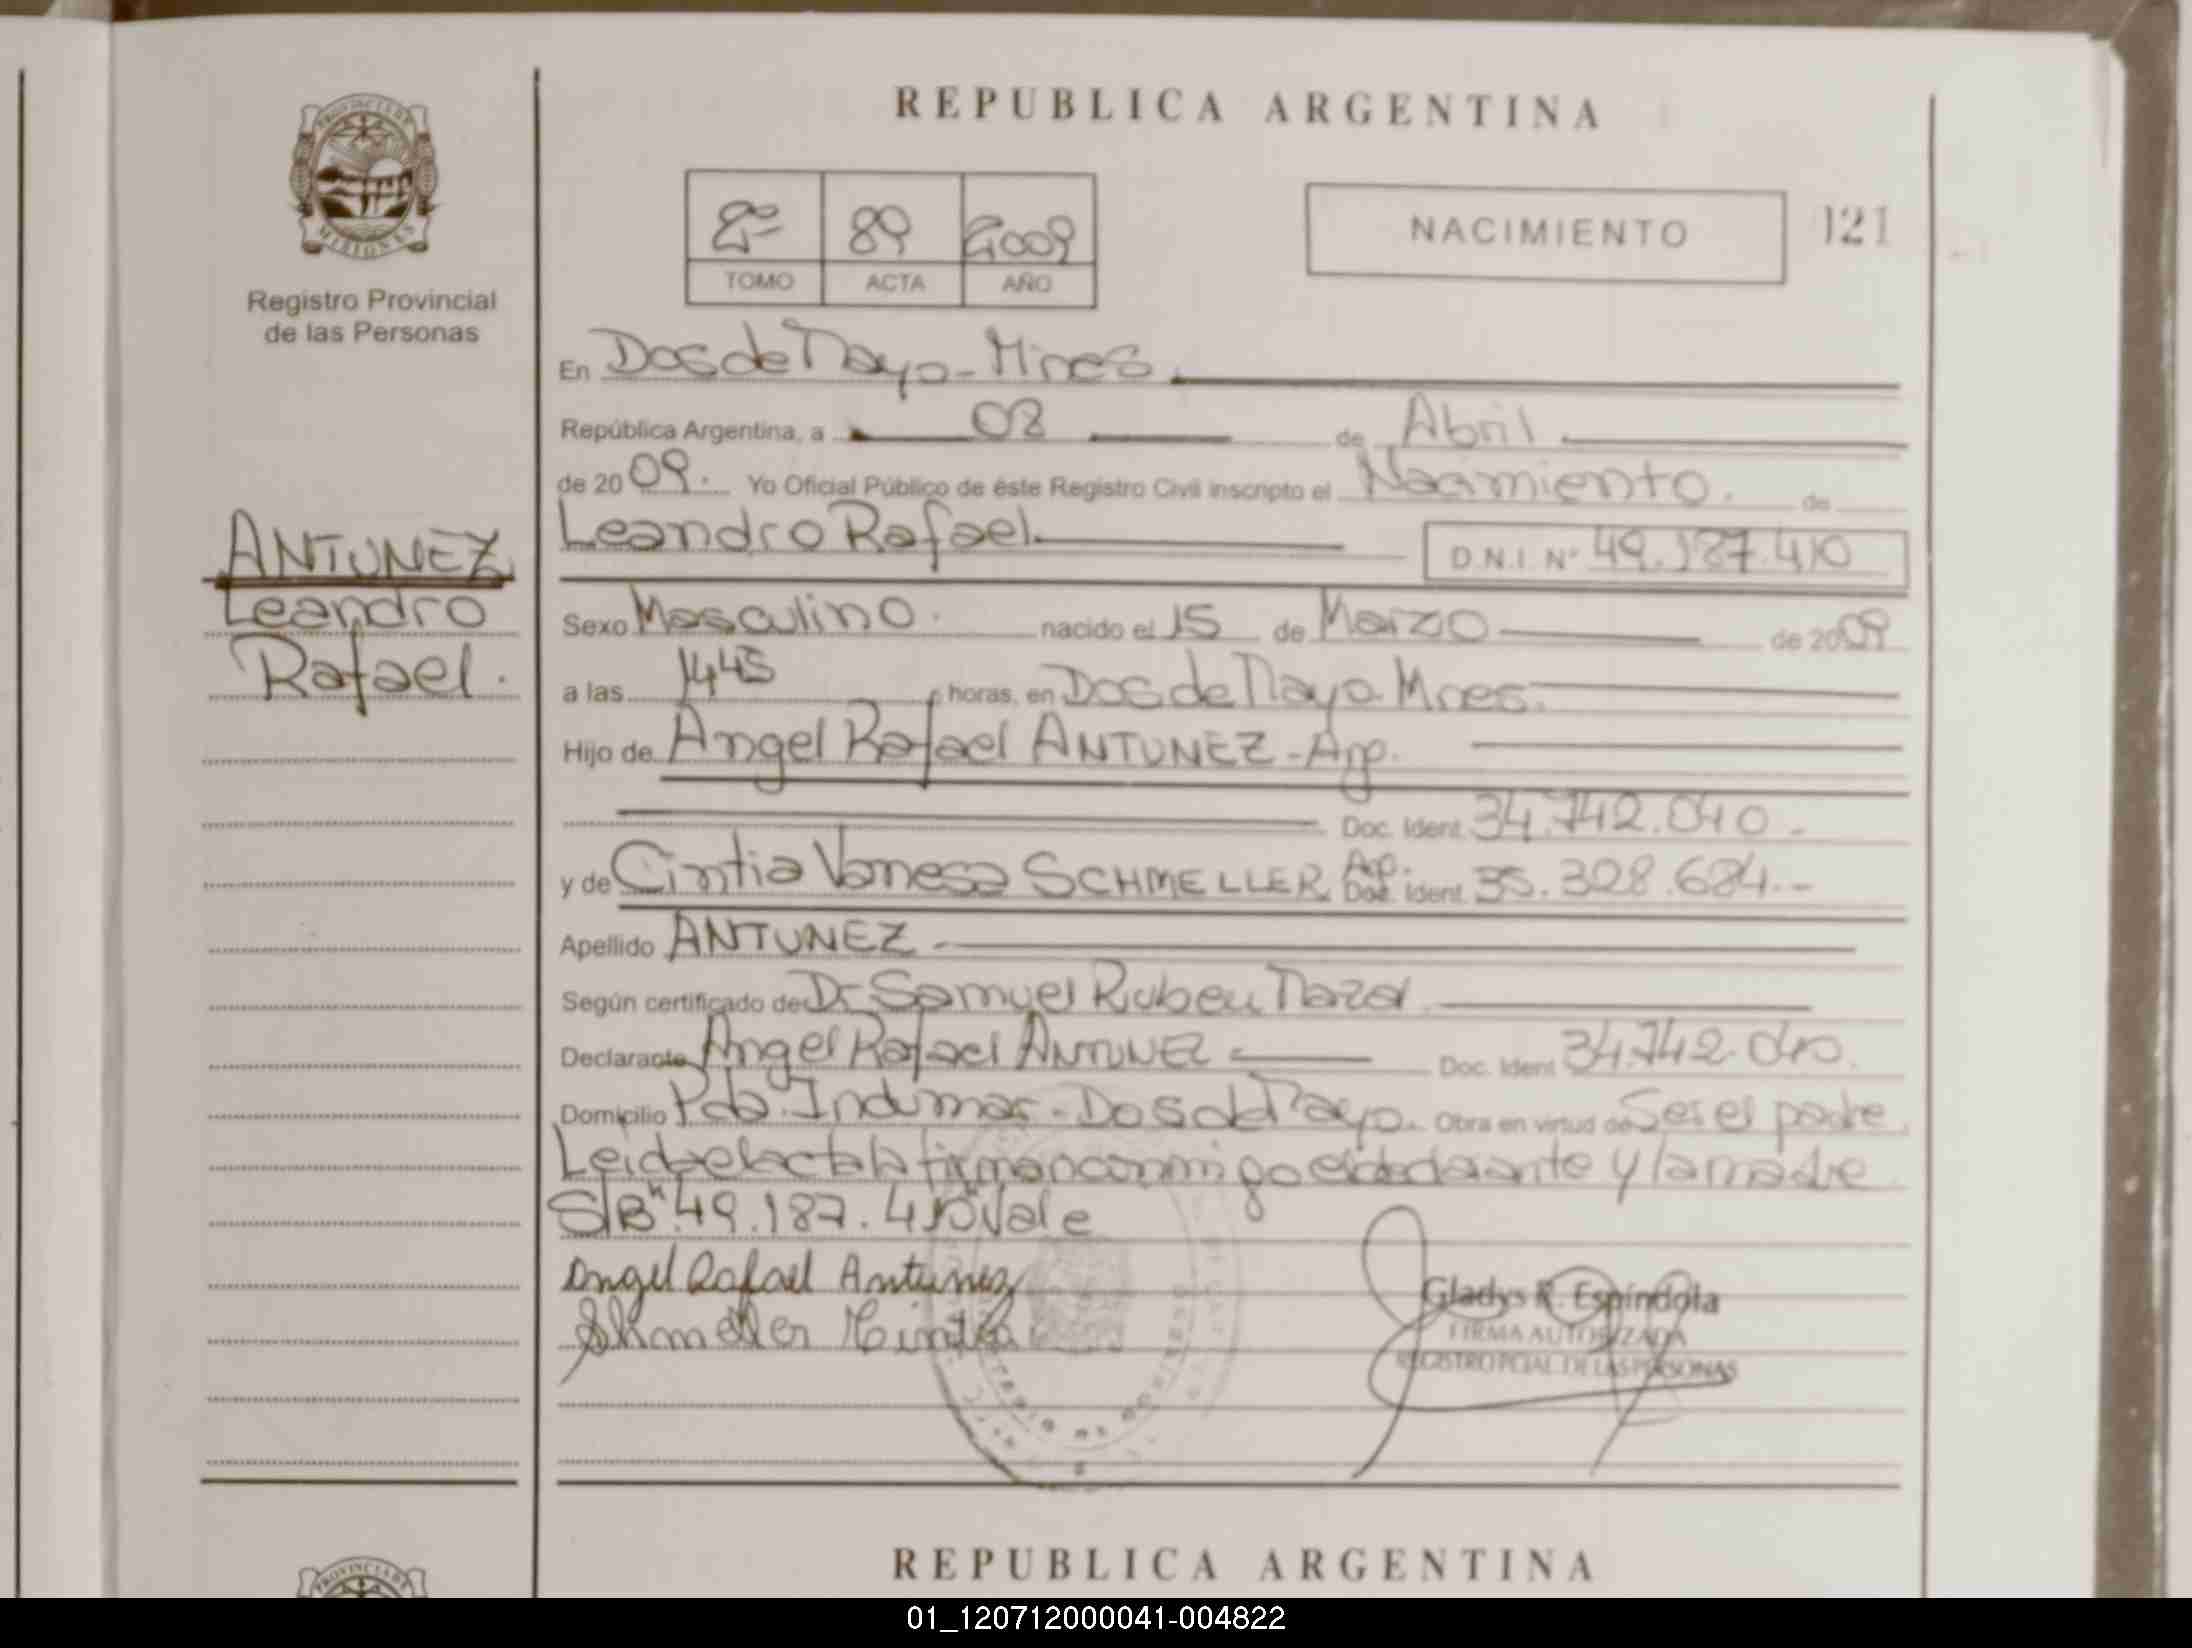 REPUBLICA ARGENTINA
PROVINCIA DE
MISIONES
Registro Provincial
de las Personas
2º 89 2009
TOMO ACTA AÑO
NACIMIENTO 121
En Dos de Mayo - Mnes
República Argentina, a 08 de Abril
de 20 09. Yo Oficial Público de éste Registro Civil inscripto el Nacimiento. de
ANTUNEZ
Leandro
Rafael.
Leandro Rafael D.N.I. Nº 49.187.410
Sexo Masculino. nacido el 15 de Marzo de 2009
a las 1445 horas, en Dos de Mayo Mnes.
Hijo de Angel Rafael ANTUNEZ - Arg.
Doc. Ident. 34.742.040.-
y de Cintia Vanesa SCHMELLER Arg. Doc. Ident. 35.328.684.-
Apellido ANTUNEZ
Según certificado de Dr Samuel Ruben
Declarante Angel Rafael ANTUNEZ Doc. Ident 34.742.040.
Domicilio Pda. Indumar - Dos de Mayo. Obra en virtud de Ser el padre.
Leida el acta la firman conmigo el declarante y la madre
S/B "49.187.410" Vale
Angel Rafael Antunez
Shmeller Cintia
Gladys R. Espíndola
FIRMA AUTORIZADA
REGISTRO PCIAL. DE LAS PERSONAS
REPUBLICA ARGENTINA
PROVINCIA DE
01_120712000041-004822